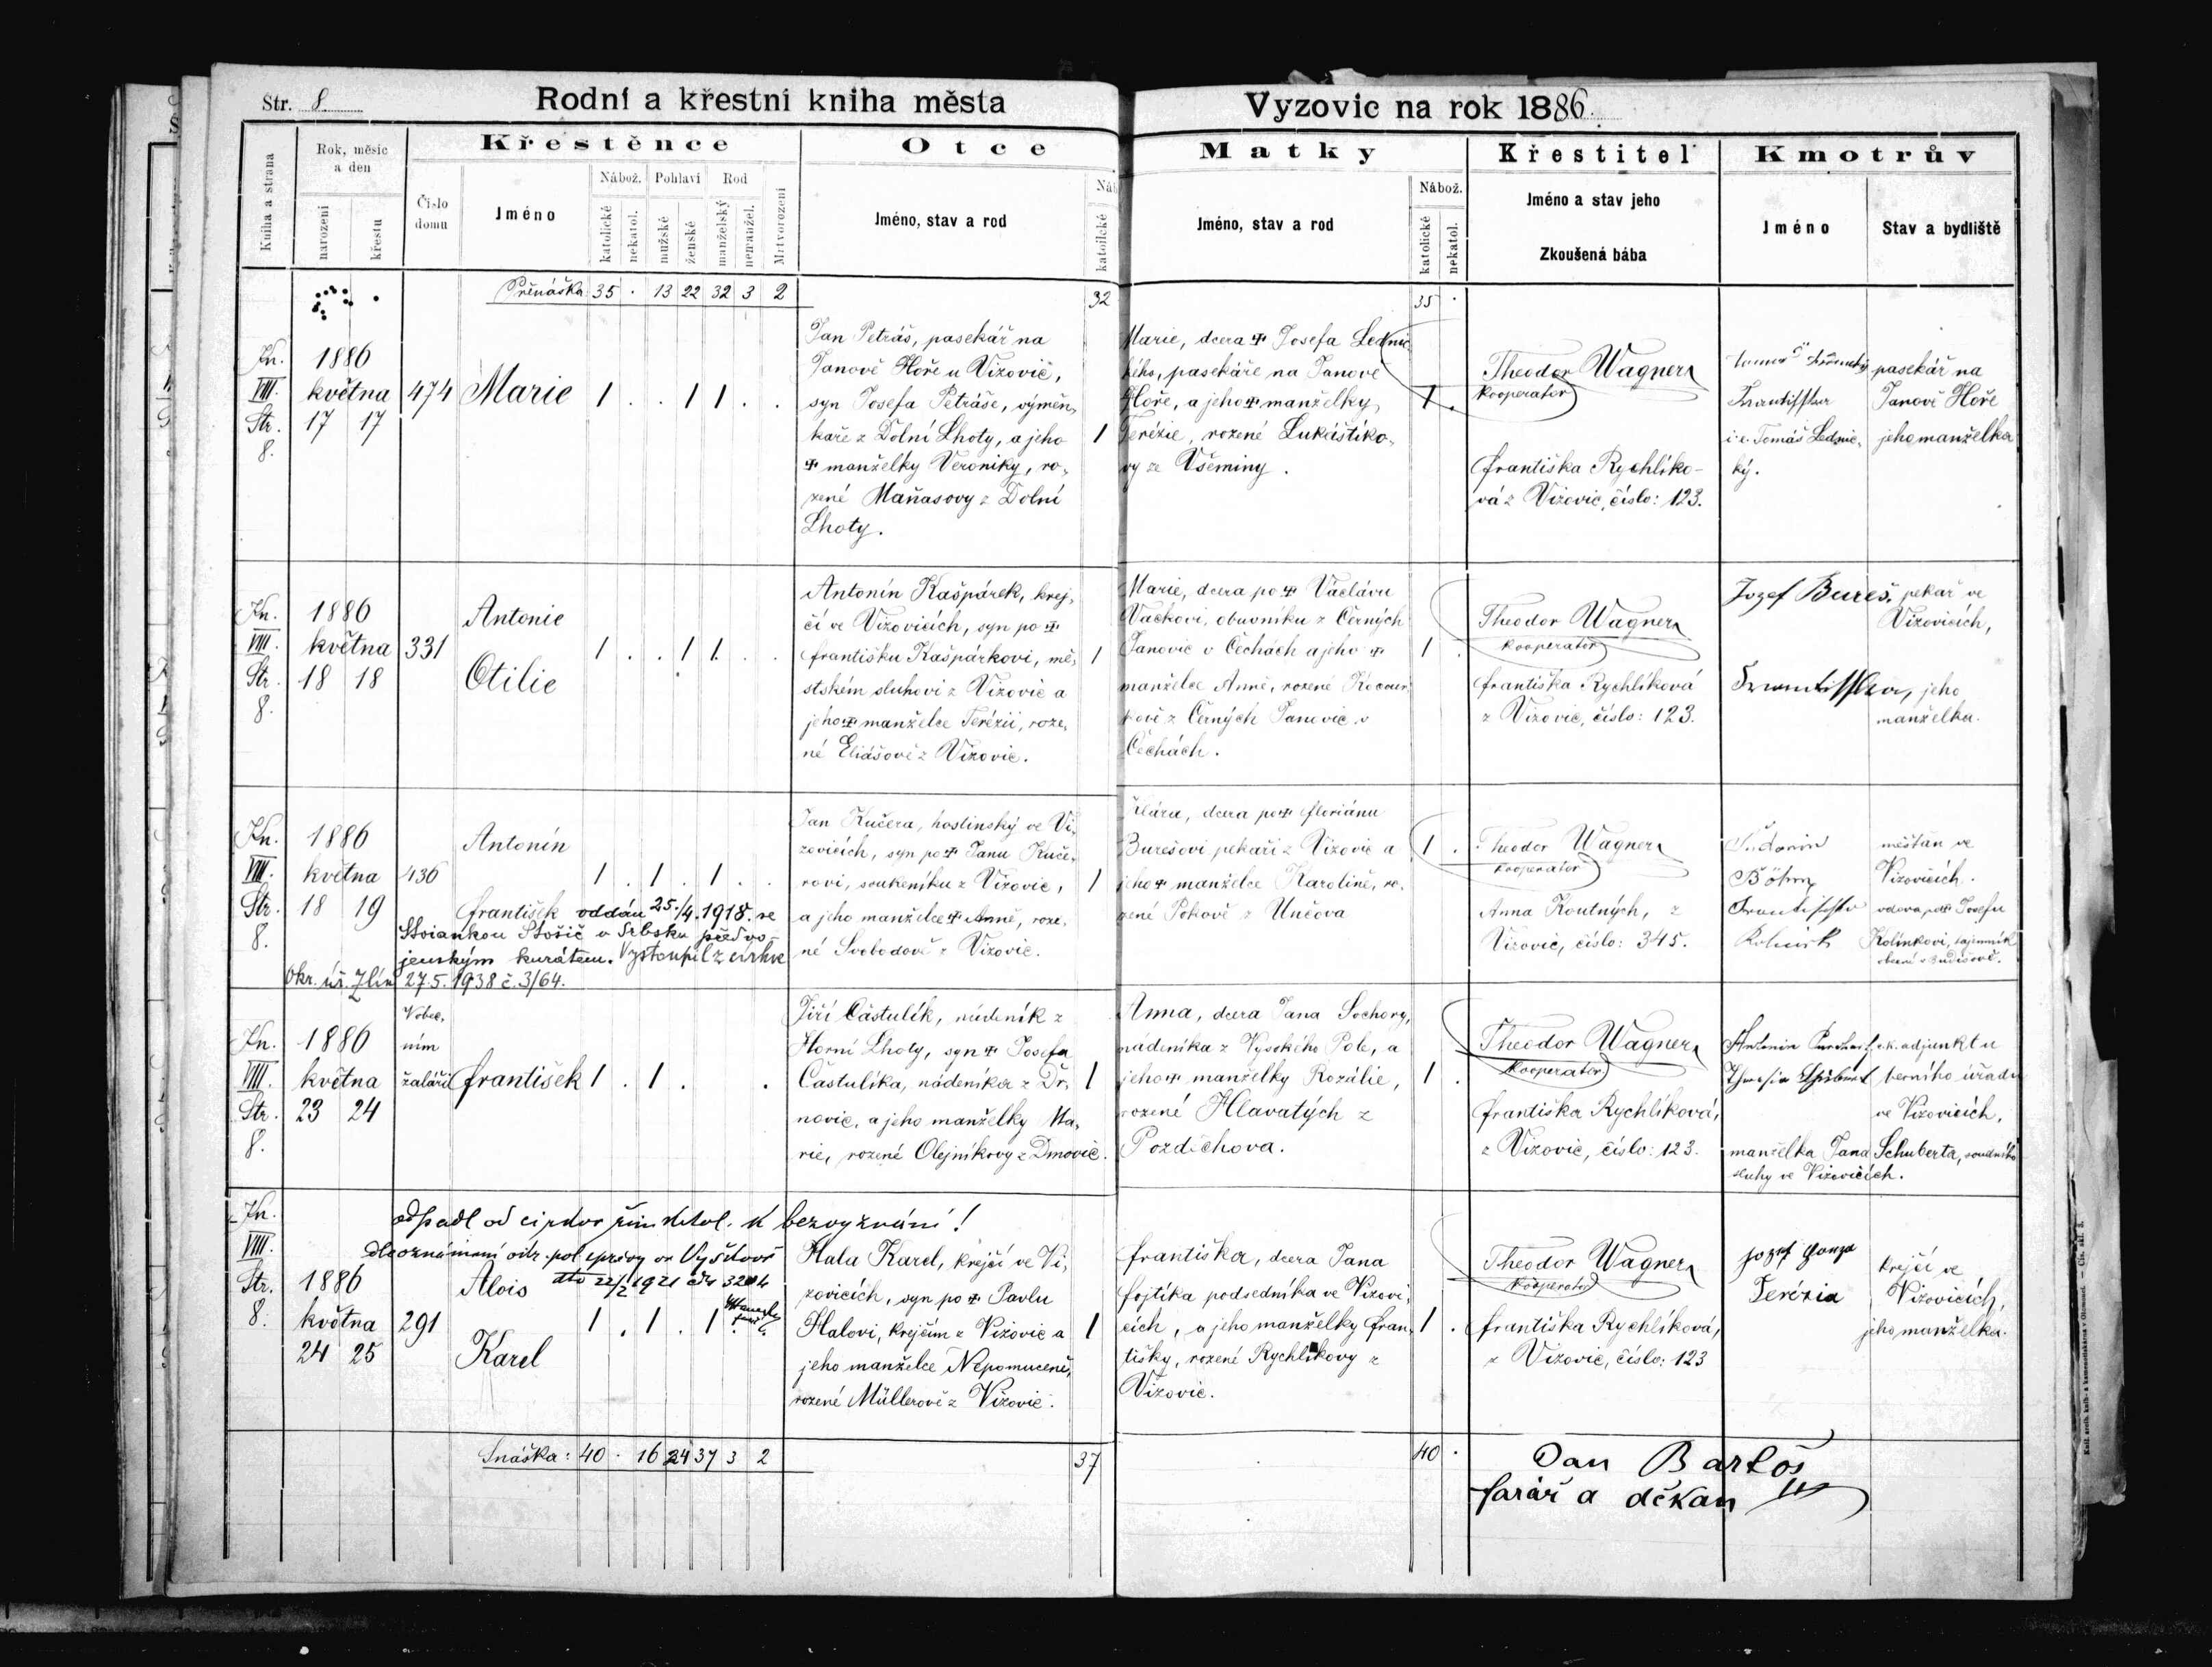 Str. 8.
Rodní a křestní kniha města
Vyzovic na rok 1886.
Kniha a strana
Rok, měsíc a den
narození
křestu
Křestěnce
Číslo domu
Jméno
Nábož.
katolické
nekatol.
Pohlaví
mužské
ženské
Rod
manželský
nemanžel.
Mrtvorození
Otce
Jméno, stav a rod
Náb
katolické
Matky
Jméno, stav a rod
Nábož.
katolické
nekatol.
Křestitel
Jméno a stav jeho
Zkoušená bába
Kmotrův
Jméno
Stav a bydliště
Přenáška 35 . 13 22 32 3 2
32
35 .
Kn.
VIII.
Str.
8.
1886
května
17 17
474
Marie
1 . . 1 1 . .
Jan Petráš, pasekář na
Janově Hoře u Vizovic,
syn Josefa Petráše, výměn,
kaře z Dolní Lhoty, a jeho
✠ manželky Veroniky, ro,
zené Maňasovy z Dolní
Lhoty.
1
Marie, dcera ✠ Josefa Lednic
kého, pasekáře na Janově
Hoře, a jeho ✠ manželky
Terézie, rozené Lukáštíko,
vy ze Všeminy.
1 .
Theodor Wagner
Kooperator
Františka Rychlíko-
vá z Vizovic, číslo: 123.
i.e. Tomáš Lednic,
ký.
pasekář na
Janově Hoře
jeho manželka
Kn.
VIII.
Str.
8.
1886
května
18 18
331
Antonie
Otilie
1 . . 1 1 . .
Antonín Kašpárek, krej,
čí ve Vizovicích, syn po ✠
Františku Kašpárkovi, mě,
stském sluhovi z Vizovic a
jeho ✠ manželce Terézii, roze,
né Eliášově z Vizovic.
1
Marie, dcera po ✠ Václavu
Vackovi, obuvníku z Černých
Janovic v Čechách a jeho ✠
manželce Anně, rozené
z Černých Janovic v
Čechách.
1 .
Theodor Wagner
Kooperator
Františka Rychlíková
z Vizovic, číslo: 123.
Jozef Bureš,
Františka,
pekař ve
Vizovicích,
jeho
manželka.
Kn.
VIII.
Str.
8.
1886
května
18 19
436
Antonín
František
1 . 1 . 1 . .
oddán 25./4. 1918. se
Stoiankou Stošič v Srbsku před vo-
jenským kurátem. Vystoupil z církve
Okr. úř. Zlín 27.5.1938 č. 3/64.
Jan Kučera, hostinský ve Vi,
zovicích, syn po ✠ Janu Kuče,
rovi, soukeníku z Vizovic,
a jeho manželce ✠ Anně, roze,
né Svobodově z Vizovic.
1
Klára, dcera po ✠ Floriánu
Burešovi pekaři z Vizovic a
jeho ✠ manželce Karolině, ro,
zené Pokově z Unčova
1 .
Theodor Wagner
Kooperator
Anna Koutných, z
Vizovic, číslo: 345.
Böhm
měšťan ve
Vizovicích.
vdova po ✠ Josefu
Kolínkovi,
Kn.
VIII.
Str.
8.
1886
května
23 24
V obec,
ním
žaláři
František
1 . 1 . .
Jiří Částulík, nádeník z
Horní Lhoty, syn ✠ Josefa
Částulíka, nádeníka z Dr,
novic, a jeho manželky Ma,
rie, rozené Olejníkovy z Drnovic.
1
Anna, dcera Jana Sochory,
nádeníka z Vysokého Pole, a
jeho ✠ manželky Rozálie,
rozené Hlavatých z
Pozděchova.
1 .
Theodor Wagner
Kooperator
Františka Rychlíková,
z Vizovic, číslo: 123.
Antonín
c.k. adjunkt u
berního úřadu
ve Vizovicích,
manželka Jana Schuberta, soudního
sluhy ve Vizovicích.
Kn.
VIII.
Str.
8.
1886
května
24 25
291
odpadl od církve řím. katol. k bezvyznání!
dle oznámení
dto 22/2 1921
Alois
Karel
1 . 1 . 1
Hala Karel, krejčí ve Vi,
zovicích, syn po ✠ Pavlu
Halovi, krejčím z Vizovic a
jeho manželce Nepomuceně,
rozené Müllerově z Vizovic.
1
Františka, dcera Jana
Fojtíka podsedníka ve Vizovi,
cích, a jeho manželky Fran,
tišky, rozené Rychlíkovy z
Vizovic.
1 .
Theodor Wagner
Kooperator
Františka Rychlíková,
z Vizovic, číslo: 123
Jozef
Terézia
krejčí ve
Vizovicích,
jeho manželka.
Snáška: 40 . 16 24 37 3 2
37
40 .
Jan Bartoš
farář a děkan